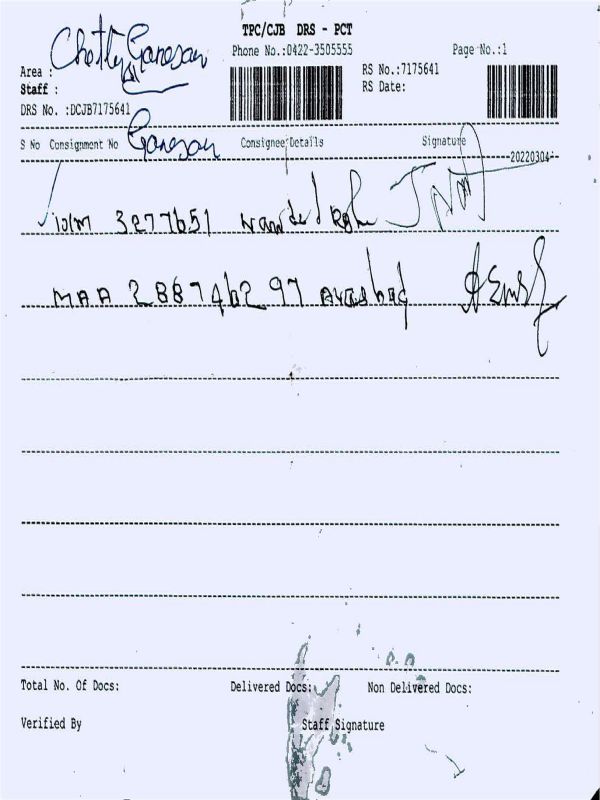 TPC/CJB DRS - PCT
Phone No.:0422-3505555 Page No.:1
Chetty Ganesan
Area :
Staff :
RS No.:7175641
RS Date:
DRS No. :DCJB7175641
Ganesan
S No Consignment No Consignee Details Signature
20220304
3277651
MAA 288746297
Total No. Of Docs: Delivered Docs: Non Delivered Docs:
Verified By Staff Signature